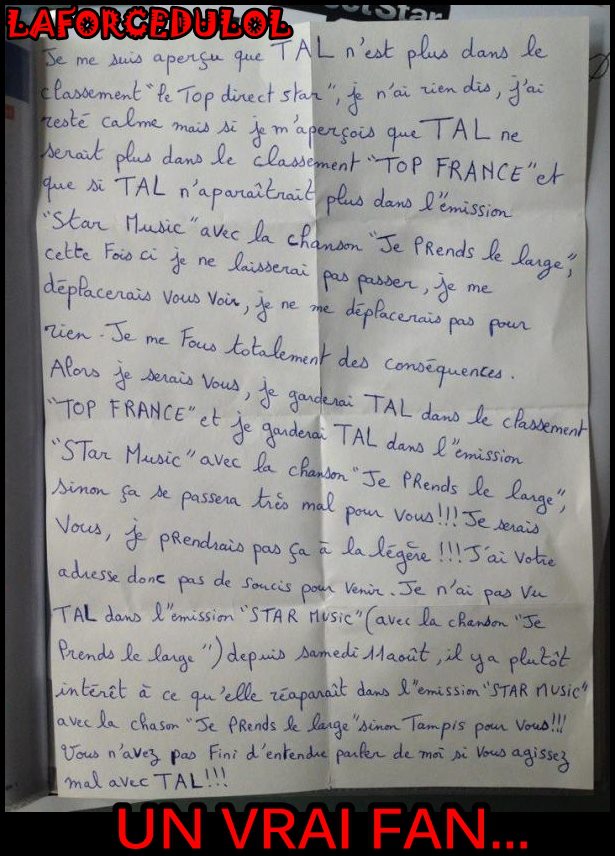 LAFORCEDULOL
ctStar
Je me suis aperçu que TAL n'est plus dans le
classement "le Top direct star", je n'ai rien dis, j'ai
resté calme mais si je m'aperçois que TAL ne
serait plus dans le classement "TOP FRANCE" et
que si TAL n'aparaîtrait plus dans l"émission
"Star Music" avec la chanson "Je PRends le large",
cette Fois ci je ne laisserai pas passer, je me
déplacerais vous voir, je ne me déplacerais pas pour
rien. Je me Fous totalement des conséquences.
Alors je serais vous, je garderai TAL dans le classement
"TOP FRANCE" et je garderai TAL dans l"émission
"STar Music" avec la chanson "Je PRends le large",
sinon ça se passera très mal pour vous!!! Je serais
Vous, je pRendrais pas ça à la légère!!! J'ai votre
adresse donc pas de soucis pour venir. Je n'ai pas vu
TAL dans l"émission "STAR MUSIC" (avec la chanson "Je
Prends le large") depuis samedi 11 août, il y a plutôt
intérêt à ce qu'elle réaparaît dans l"emission "STAR MUSIC"
avec la chason "Je PRends le large" sinon Tampis pour Vous!!!
Vous n'avez pas Fini d'entendre parler de moi si vous agissez
mal avec TAL!!!
UN VRAI FAN...